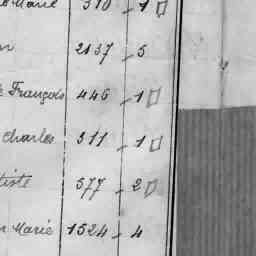 Marie 310 - 1
n 2137 - 5
François 446 - 1
Charles 311 - 1
tiste 577 - 2
n Marie 1524 - 4